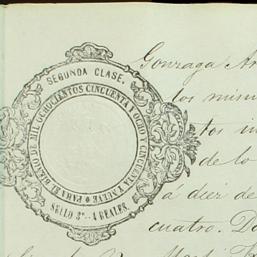 SEGUNDA CLASE.
PARA EL BIENIO DE MIL OCHOCIENTOS CINCUENTA Y OCHO Y CINCUENTA Y NUEVE
SELLO 3º--4 REALES.
Gonzaga
los mism
tos
de lo
á diez de
cuatro. Do